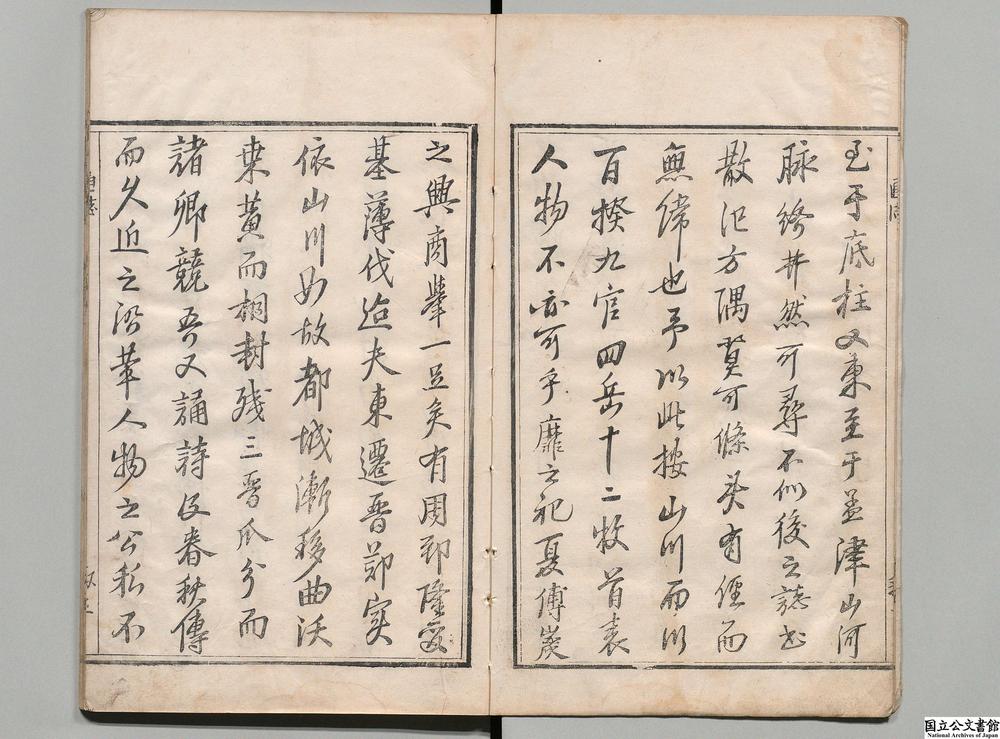 至于底柱又東至于孟津山河
脉絡井然可尋不似後之誌書
散氾方隅莫可條矣有經而
無緯也予以此按山川而以
百揆九官四岳十二牧首表
人物不亦可乎靡之祀夏傅巖
之興商舉一足矣有周郅隆爰
基薄伐迨夫東遷晉鄭寔
依山川如故都城漸移曲沃
乗黄而桐封殘三晉瓜分而
諸卿競吾又誦詩及春秋傳
而久近之沿革人物之公私不
国立公文書館
National Archives of Japan